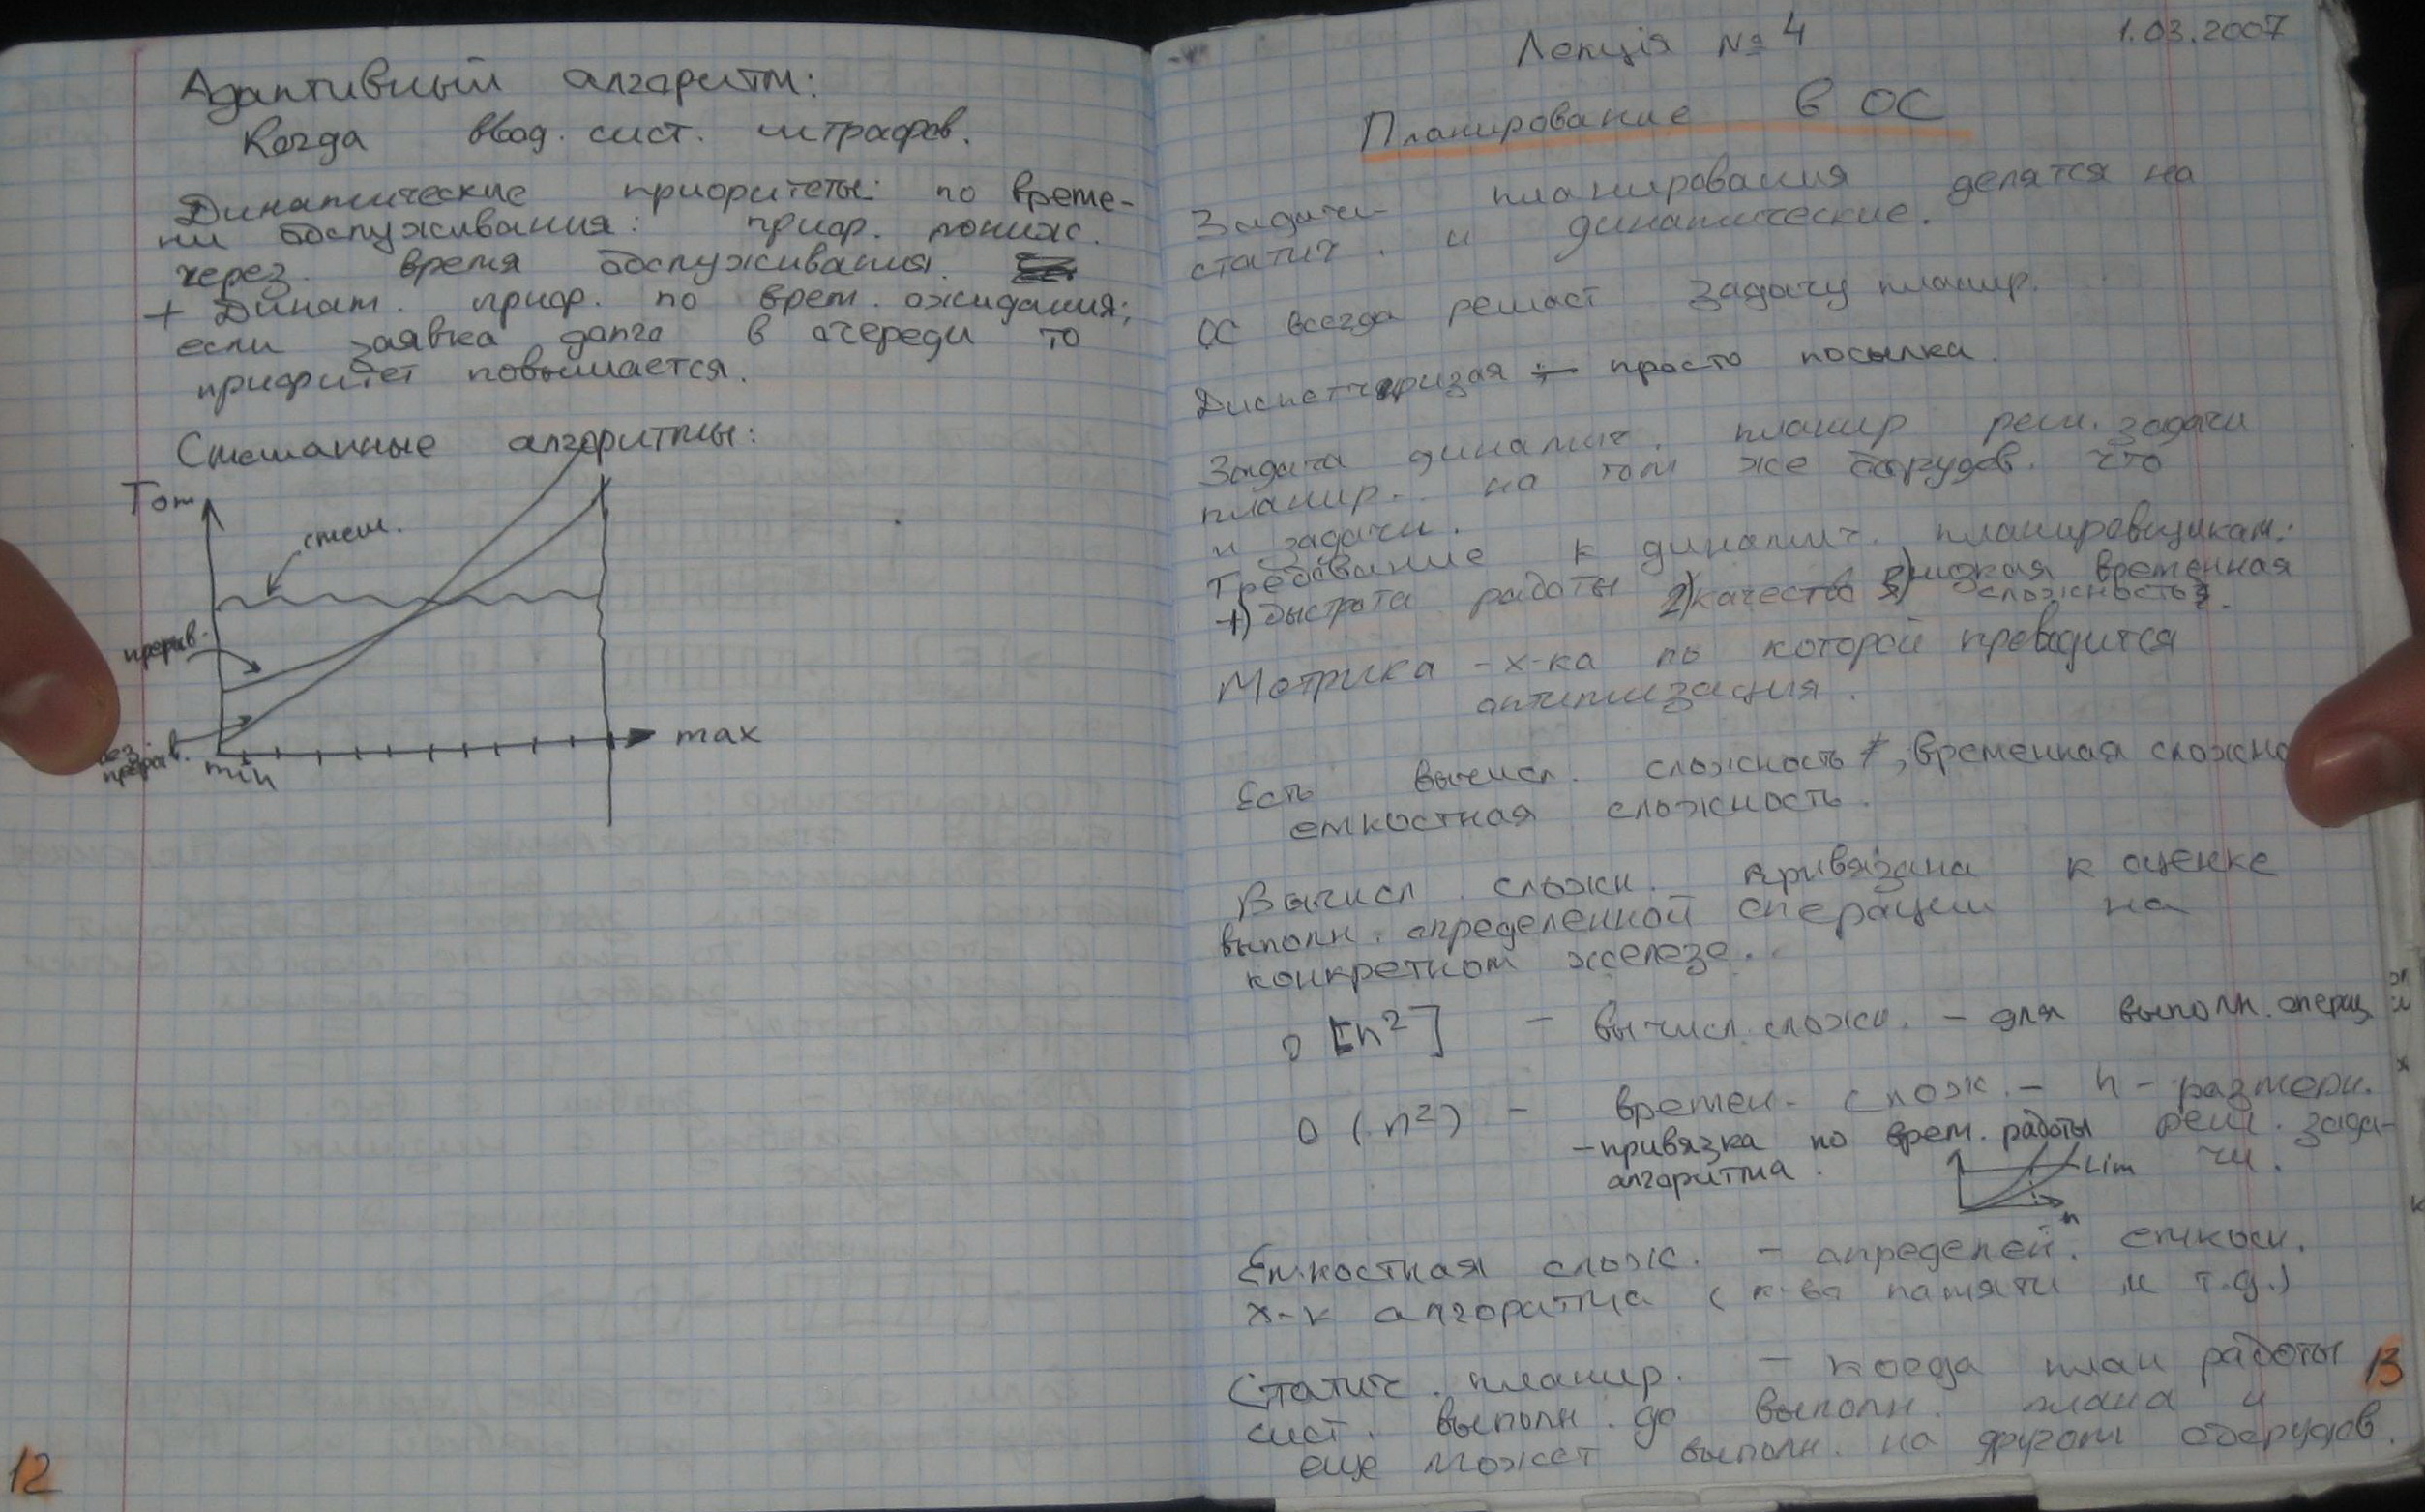 Адаптивный алгоритм:
Когда ввод. сист. штрафов.
Динамические приоритеты: по време-
ни обслуживания: приор. пониж.
через. время обслуживания.
+ Динам. приор. по врем. ожидания;
если заявка долго в очереди то
приоритет повышается.
Смешанные алгоритмы:
Tож
смеш.
прерыв.
без
прерыв.
min
max
12
Лекція № 4
1.03.2007
Планирование в ОС
Задачи планирования делятся на
статич. и динамические.
ОС всегда решает задачу планир.
Диспетчеризая - просто посылка.
Задача динамич. планир реш. задачи
планир. на том же борудов. что
и задачи.
Требование к динамич. планировщикам:
1) быстрота работы 2) качество 3) низкая временная
сложность.
Метрика - х-ка по которой проводится
оптимизация.
Есть вычисл. сложность, временная сложно
емкостная сложность.
Вычисл. сложн. привязана к оценке
выполн. определенной операции на
конкретном железе.
0 [n²] - вычисл. сложн. - для выполн. операц
0 (n²) - времен. слож. - n - размерн.
- привязка по врем. работы реш. зада-
алгоритма. чи.
Lim
n
Емкостная слож. - определен. емкосн.
х-к алгоратма ( к-во памяти и т.д.)
Статич. планир. - когда план работы
сист. выполн. до выполн. плана и
еще может выполн. на другом оборудов.
13